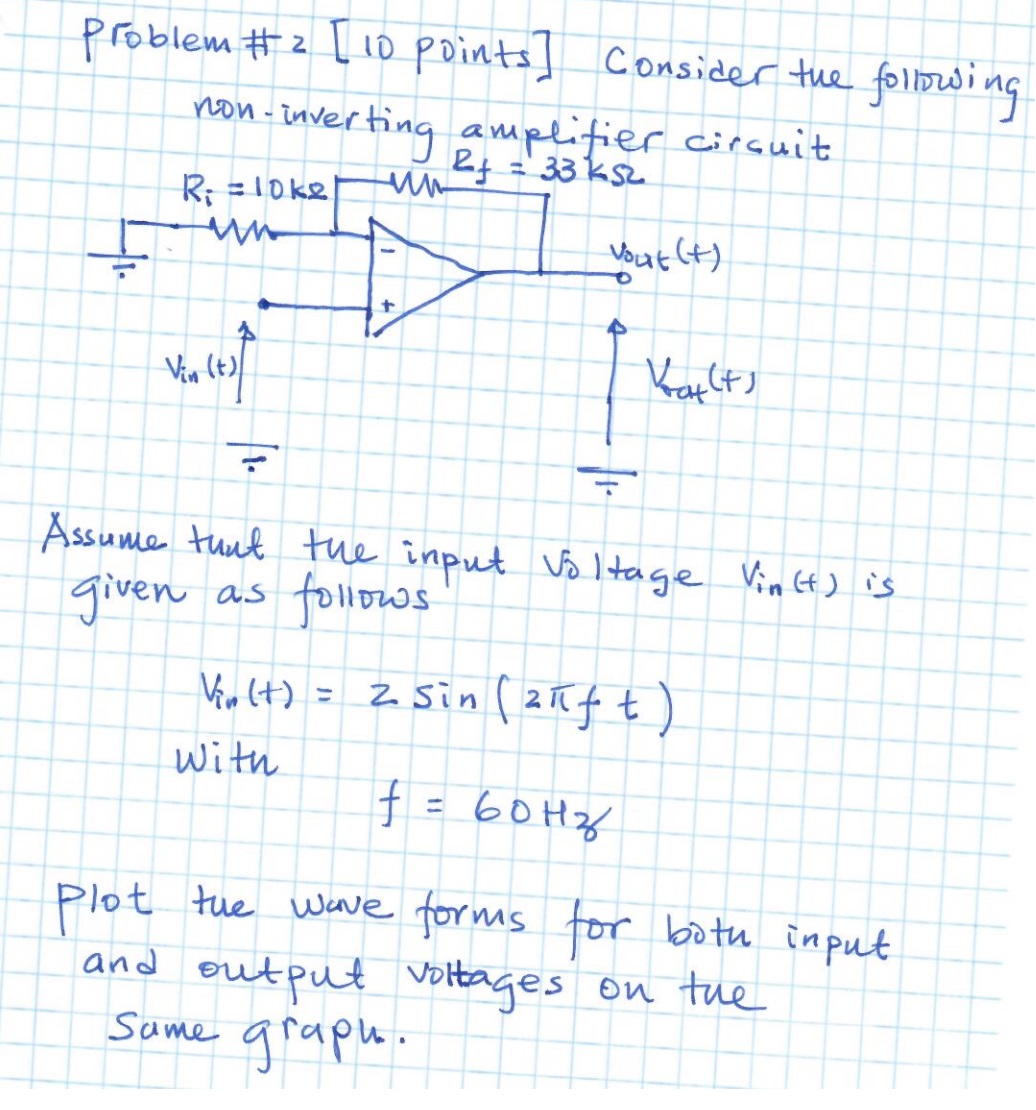 Problem #2 [10 points] Consider the following
non-inverting amplifier circuit
Rf = 33 kΩ
Ri = 10kΩ
-
+
Vout(t)
Vin(t)
Vout(t)
Assume that the input voltage Vin(t) is
given as follows
Vin(t) = 2 sin(2πft)
with
f = 60Hz
Plot the wave forms for both input
and output voltages on the
same graph.